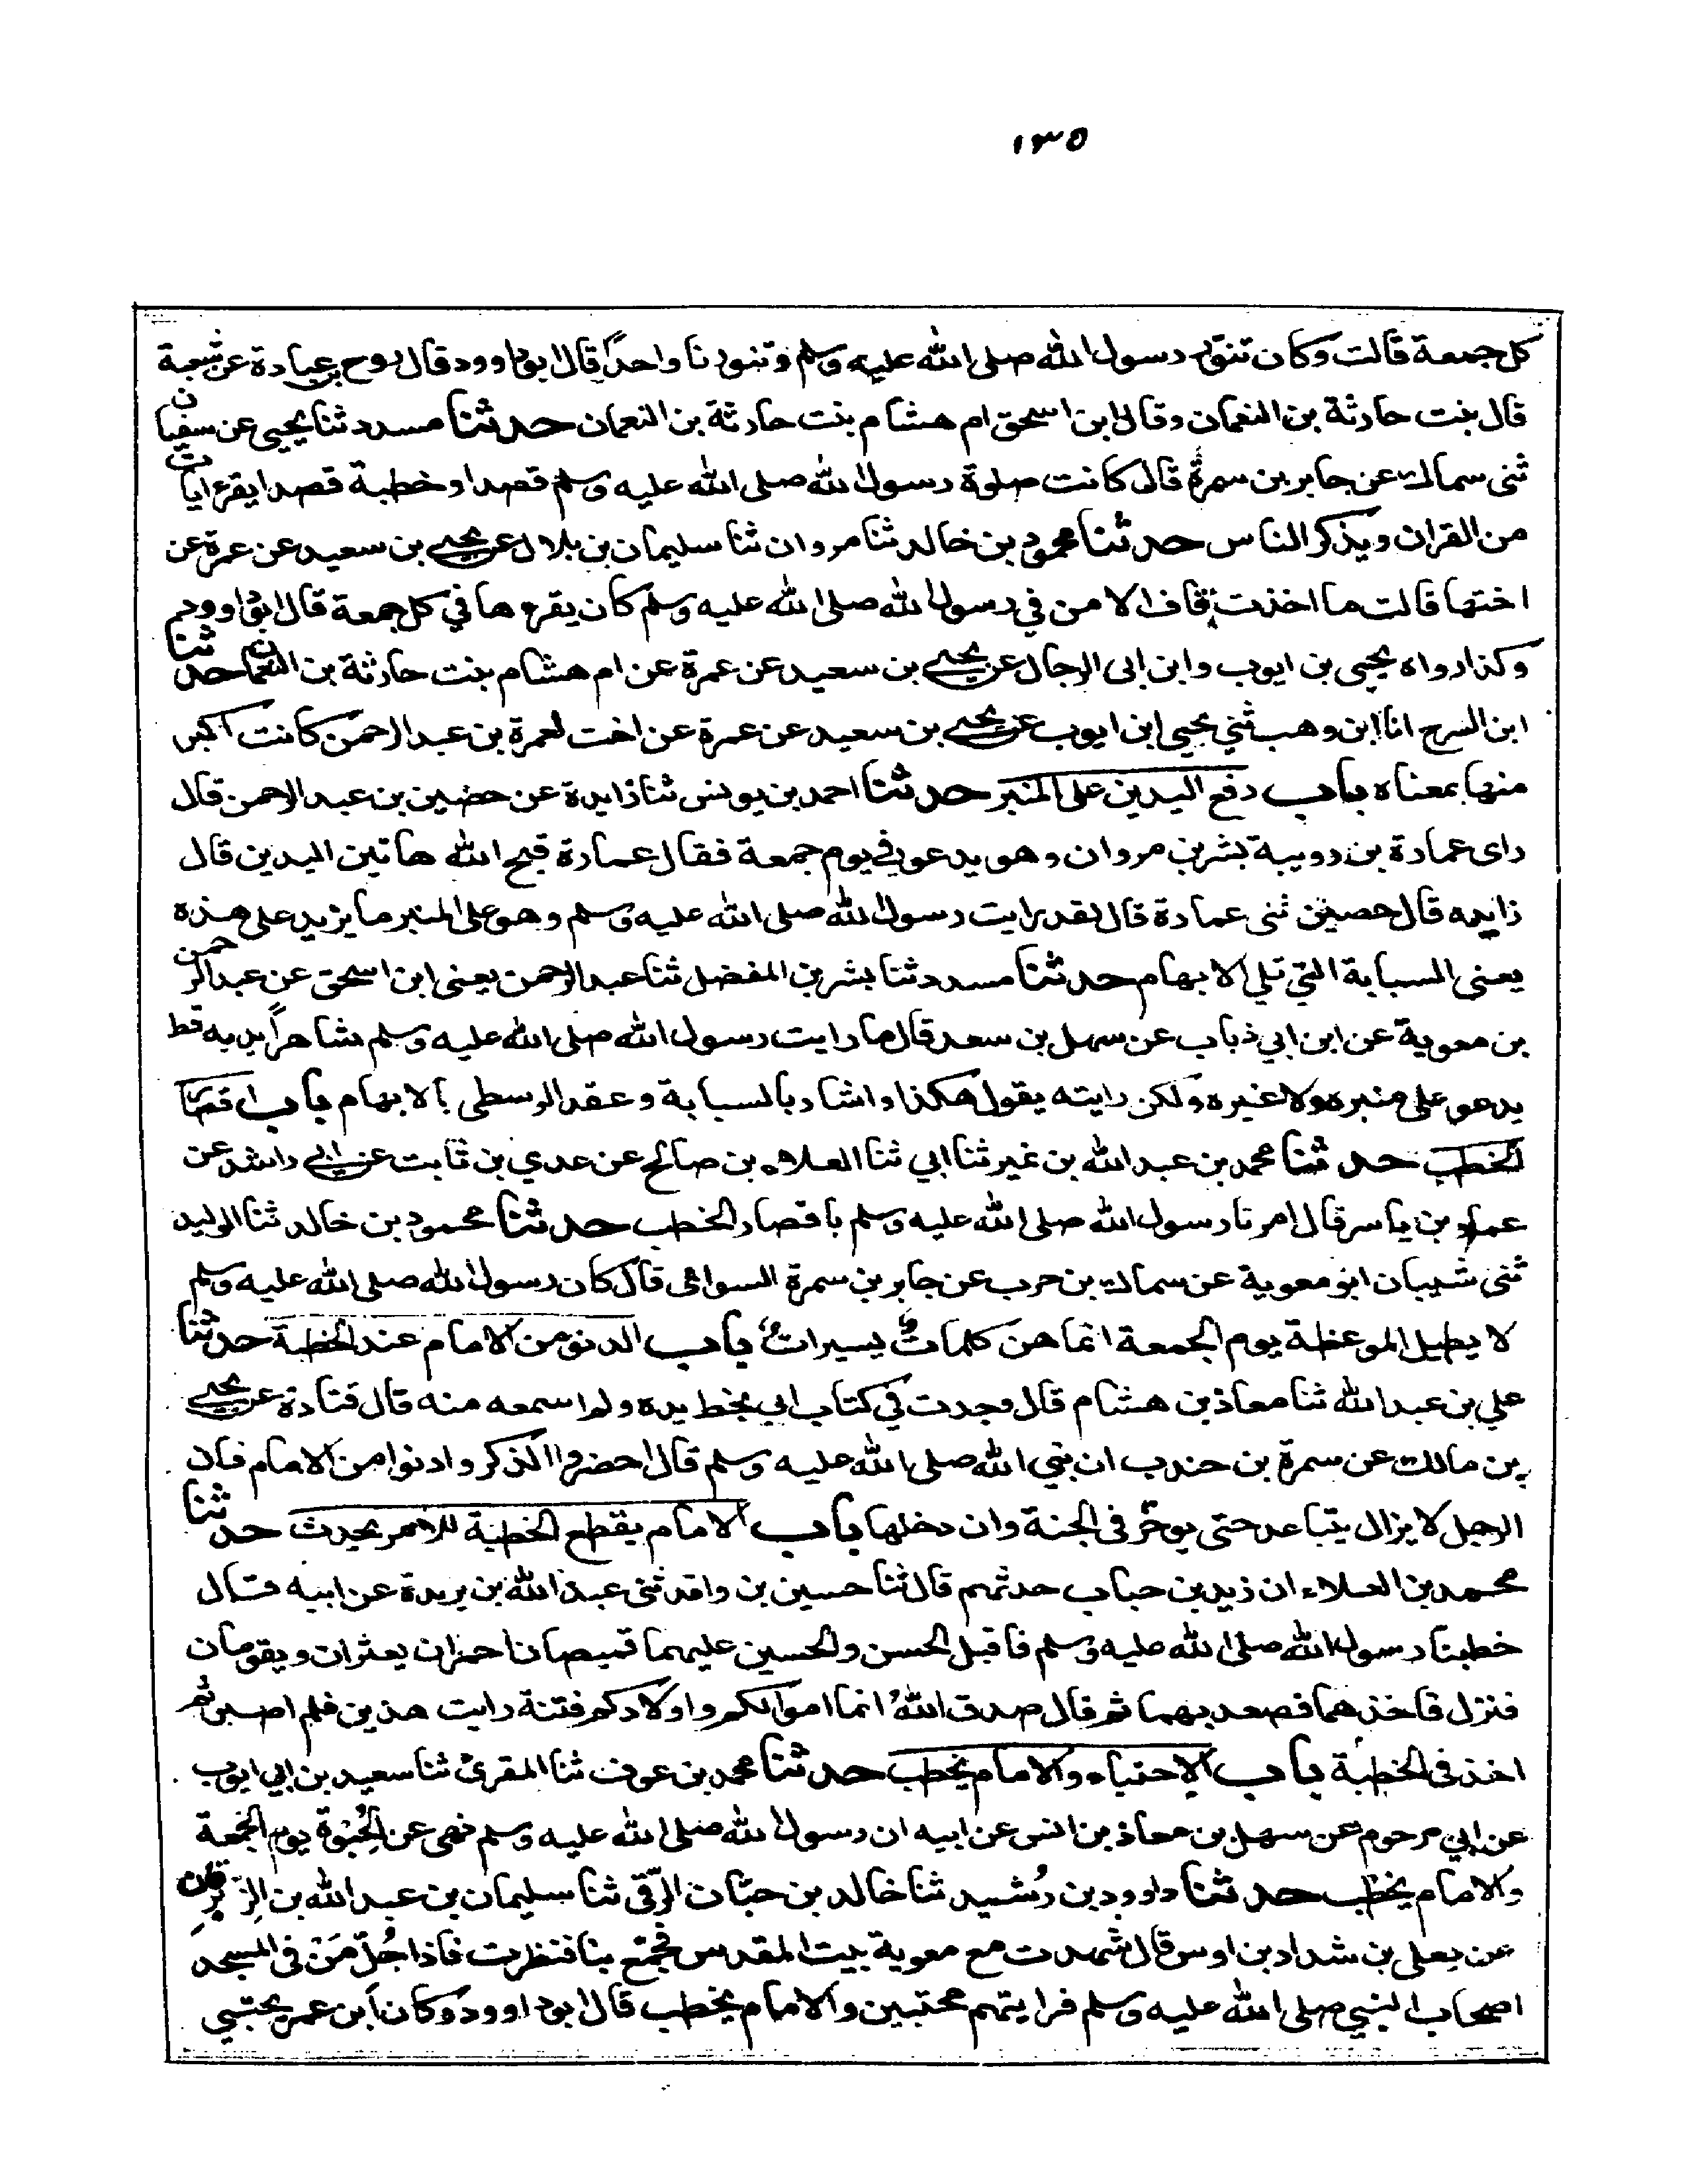 ١٣٥
كل جمعة قالت وكان تنور رسول الله صلى الله عليه وسلم وتنورنا واحدًا قال ابو داوود قال روح بن عبادة عن شعبة
قال بنت حارثة بن النعمان وقال ابن اسحق ام هشام بنت حارثة بن النعمان حدثنا مسدد ثنا يحيى عن سفيان
ثنى سماك عن جابر بن سمرة قال كانت صلوة رسول الله صلى الله عليه وسلم قصدا وخطبة قصدا يقرء ايات
من القران ويذكر الناس حدثنا محمود بن خالد ثنا مروان ثنا سليمان بن بلال عن يحيى بن سعيد عن عمرة عن
اختها قالت ما اخذت قاف الا من في رسول الله صلى الله عليه وسلم كان يقرءها في كل جمعة قال ابو داوود
وكذا رواه يحيى بن ايوب وابن ابى الرجال عن يحيى بن سعيد عن عمرة عن ام هشام بنت حارثة بن النعمان حدثنا
ابن السرح انا ابن وهب ثني يحيى ابن ايوب عن يحيى بن سعيد عن عمرة عن اخت لعمرة بن عبد الرحمن كانت اكبر
منها بمعناه باب رفع اليدين على المنبر حدثنا احمد بن يونس ثنا زايدة عن حضين بن عبد الرحمن قال
راى عمارة بن رويبة بشر بن مروان وهو يدعو في يوم جمعة فقال عمارة قبح الله هاتين اليدين قال
زايده قال حصين ثنى عمارة قال لقد رايت رسول الله صلى الله عليه وسلم وهو على المنبر ما يزيد على هذه
يعنى السبابة التي تلي الابهام حدثنا مسدد ثنا بشر بن المفضل ثنا عبد الرحمن يعنى ابن اسحق عن عبد الرحمن
بن معوية عن ابن ابي ذباب عن سهل بن سعد قال ما رايت رسول الله صلى الله عليه وسلم شاهراً يديه قط
يدعو على منبره ولا غيره ولكن رايته يقول هكذا واشار بالسبابة وعقد الوسطى بالابهام باب اقصار
الخطب حدثنا محمد بن عبد الله بن نمير ثنا ابي ثنا العلاء بن صالح عن عدي بن ثابت عن ابي راشد عن
عمار بن ياسر قال امرنا رسول الله صلى الله عليه وسلم باقصار الخطب حدثنا محمود بن خالد ثنا الوليد
ثنى شيبان ابو معوية عن سماك بن حرب عن جابر بن سمرة السوائى قال كان رسول الله صلى الله عليه وسلم
لا يطيل الموعظة يوم الجمعة انما هن كلماتٌ يسيراتٌ باب الدنو من الامام عند الخطبة حدثنا
علي بن عبد الله ثنا معاذ بن هشام قال وجدت في كتاب ابي بخط يده ولم اسمعه منه قال قتادة عن يحيى
بن مالك عن سمرة بن جندب ان نبي الله صلى الله عليه وسلم قال احضروا الذكر وادنوا من الامام فان
الرجل لا يزال يتباعد حتى يوخّر فى الجنة وان دخلها باب الامام يقطع الخطبة للامر يحدث حدثنا
محمد بن العلاء ان زيد بن حباب حدثهم قال ثنا حسين بن واقد ثنى عبد الله بن بريدة عن ابيه قال
خطبنا رسول الله صلى الله عليه وسلم فاقبل الحسن والحسين عليهما قميصان احمران يعثران ويقومان
فنزل فاخذهما فصعد بهما ثم قال صدق اللهُ انما اموالكم واولادكم فتنة رايت هذين فلم اصبر ثم
اخذ فى الخطبة باب الاحتباء والامام يخطب حدثنا محمد بن عوف ثنا المقرئ ثنا سعيد بن ابي ايوب
عن ابي مرحوم عن سهل بن معاذ بن انس عن ابيه ان رسول الله صلى الله عليه وسلم نهى عن الحُبْوَة يوم الجمعة
والامام يخطب حدثنا داوود بن رُشيد ثنا خالد بن حيّان الرّقى ثنا سليمان بن عبد الله بن الزِّبْرِقان
عن يعلى بن شداد بن اوس قال شهدت مع معوية بيت المقدس فجمّع بنا فنظرت فاذا جُلّ مَنْ فى المسجد
اصحاب النبي صلى الله عليه وسلم فرايتهم محتبين والامام يخطب قال ابو داوود وكان ابن عمر يحتبي